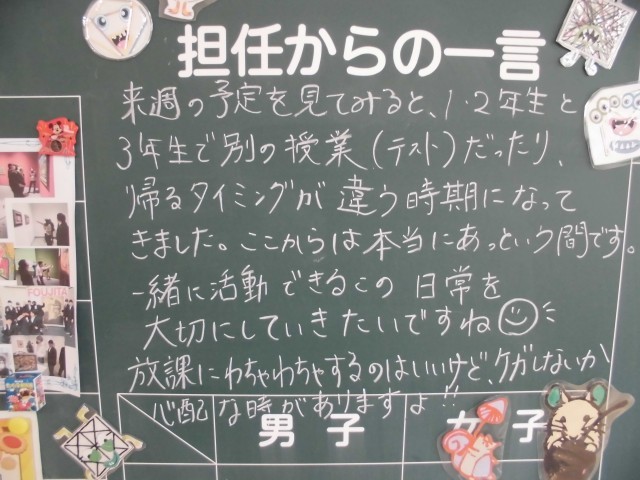 担任からの一言
来週の予定を見てみると、1・2年生と
3年生で別の授業(テスト)だったり、
帰るタイミングが違う時期になって
きました。ここからは本当にあっという間です。
一緒に活動できるこの日常を
大切にしていきたいですね
放課にわちゃわちゃするのはいいけど、ケガしないか
心配な時がありますよ!!
男子
女子
FOUJITA